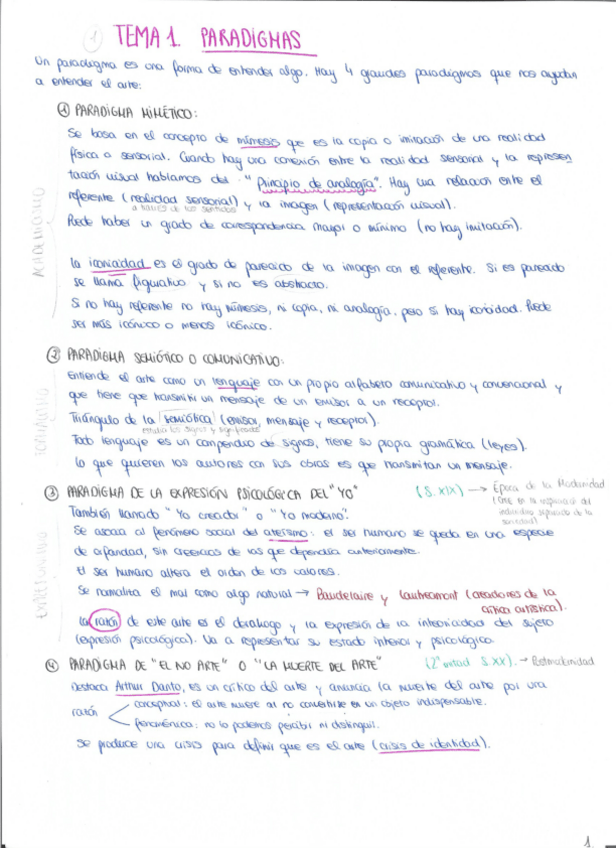 1 TEMA 1. PARADIGMAS
Un paradigma es una forma de entender algo. Hay 4 grandes paradigmas que nos ayudan
a entender el arte:
① PARADIGMA MIMÉTICO:
Se basa en el concepto de mímesis que es la copia o imitación de una realidad
física o sensorial. Cuando hay una conexión entre la realidad sensorial y la represen
tación visual hablamos del "Principio de analogía". Hay una relación entre el
referente (realidad sensorial) y la imagen (representación visual).
a través de los sentidos
Puede haber un grado de correspondencia mayor o mínimo (no hay imitación).
ACADEMICISMO
La iconicidad es el grado de parecido de la imagen con el referente. Si es parecido
se llama figurativo y si no es abstracto.
Si no hay referente no hay mímesis, ni copia, ni analogía, pero si hay iconicidad. Puede
ser más icónico o menos icónico.
② PARADIGMA SEMIÓTICO O COMUNICATIVO:
Entiende el arte como un lenguaje con un propio alfabeto comunicativo y convencional y
que tiene que transmitir un mensaje de un emisor a un receptor.
Triángulo de la semiótica (emisor, mensaje y receptor).
estudia los signos y significados
Todo lenguaje es un compendio de signos, tiene su propia gramática (leyes).
Lo que quieren los autores con sus obras es que transmitan un mensaje.
FORMALISMO
③ PARADIGMA DE LA EXPRESIÓN PSICOLÓGICA DEL "YO" (S. XIX) → Época de la Modernidad
también llamado "Yo creador" o "Yo moderno".
Se asocia al fenómeno social del ateísmo: el ser humano se queda en una especie
de orfandad, sin creencias de las que dependía anteriormente.
El ser humano altera el orden de los valores.
Se normaliza el mal como algo natural → Baudelaire y Lautréamont (creadores de la
crítica artística).
La razón de este arte es el desahogo y la expresión de la interioridad del sujeto
(expresión psicológica). Va a representar su estado interior y psicológico.
EXPRESIONISMO
④ PARADIGMA DE "EL NO ARTE" O "LA MUERTE DEL ARTE" (2ª mitad S.XX). → Postmodernidad
Destaca Arthur Danto, es un crítico del arte y anuncia la muerte del arte por una
razón
conceptual: el arte muere al no convertirse en un objeto indispensable.
fenoménica: no lo podemos percibir ni distinguir.
Se produce una crisis para definir que es el arte (crisis de identidad).
1